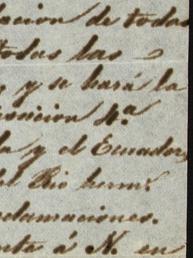 lacion de todas
todas las
y se hará la
posicion 4.ª
la y el Ecuador,
del Rio
eclamaciones.
enta á N. en